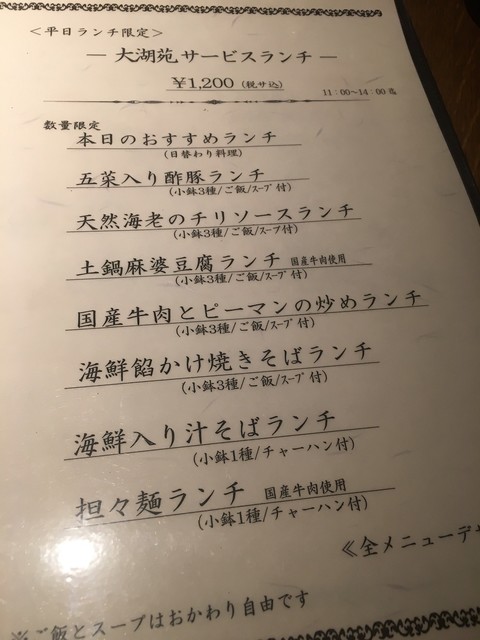 ＜平日ランチ限定＞
― 大湖苑サービスランチ ―
￥1,200 (税サ込)
11：00～14：00迄
数量限定
本日のおすすめランチ
(日替わり料理)
五菜入り酢豚ランチ
(小鉢3種/ご飯/スープ付)
天然海老のチリソースランチ
(小鉢3種/ご飯/スープ付)
土鍋麻婆豆腐ランチ 国産牛肉使用
(小鉢3種/ご飯/スープ付)
国産牛肉とピーマンの炒めランチ
(小鉢3種/ご飯/スープ付)
海鮮餡かけ焼きそばランチ
(小鉢3種/ご飯/スープ付)
海鮮入り汁そばランチ
(小鉢1種/チャーハン付)
担々麺ランチ 国産牛肉使用
(小鉢1種/チャーハン付)
≪全メニューデ
※ご飯とスープはおかわり自由です